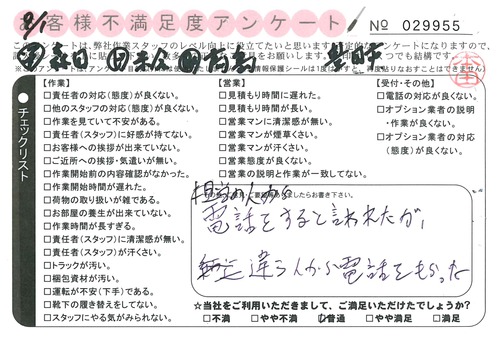 8/1
お客様不満足度アンケート
№ 029955
このアンケートは、弊社作業スタッフのレベル向上に役立てたいと思います
チェックリスト
【作業】
□責任者の対応(態度)が良くない。
□他のスタッフの対応(態度)が良くない。
□作業を見ていて不安がある。
□責任者(スタッフ)に好感が持てない。
□お客様への挨拶が出来ていない。
□ご近所への挨拶・気遣いが無い。
□作業開始前の内容確認がなかった。
□作業開始時間が遅れた。
□荷物の取り扱いが雑である。
□お部屋の養生が出来ていない。
□作業時間が長すぎる。
□責任者(スタッフ)に清潔感が無い。
□責任者(スタッフ)が汗くさい。
□トラックが汚い。
□梱包資材が汚い。
□運転が不安(下手)である。
□靴下の履き替えをしてない。
□スタッフにやる気がみられない。
【営業】
□見積もり時間に遅れた。
□見積もり時間が長い。
□営業マンに清潔感が無い。
□営業マンが煙草くさい。
□営業マンが汗くさい。
□営業態度が良くない。
□営業の説明と作業が一致してない。
【受付・その他】
□電話の対応が良くない。
□オプション業者の説明
・作業が良くない。
□オプション業者の対応
(態度)が良くない。
担当の人から
電話をすると言われたが、
違う人から電話をもらった
☆当社をご利用いただきまして、ご満足いただけたでしょうか?
□不満 □やや不満 □普通 □やや満足 □満足